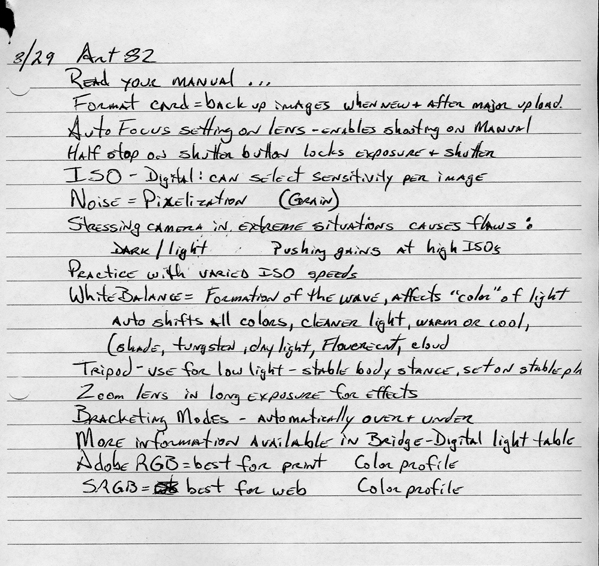 3/29 Art 82
Read your manual ...
Format card = back up images when new + after major upload.
Auto Focus setting on lens - enables shooting on Manual
Half stop on shutter button locks exposure + shutter
ISO - Digital: can select sensitivity per image
Noise = Pixelization (Grain)
Stressing camera in extreme situations causes flaws:
Dark/light Pushing gains at high ISOs
Practice with varied ISO speeds
White Balance = Formation of the wave, affects "color" of light
Auto shifts all colors, cleaner light, warm or cool,
(shade, tungsten, daylight, Flourecent, cloud
Tripod - use for low light - stable body stance, set on stable pl
Zoom lens in long exposure for effects
Bracketing Modes - automatically over + under
More information available in Bridge - Digital light table
Adobe RGB = best for print Color profile
SRGB = best for web Color profile